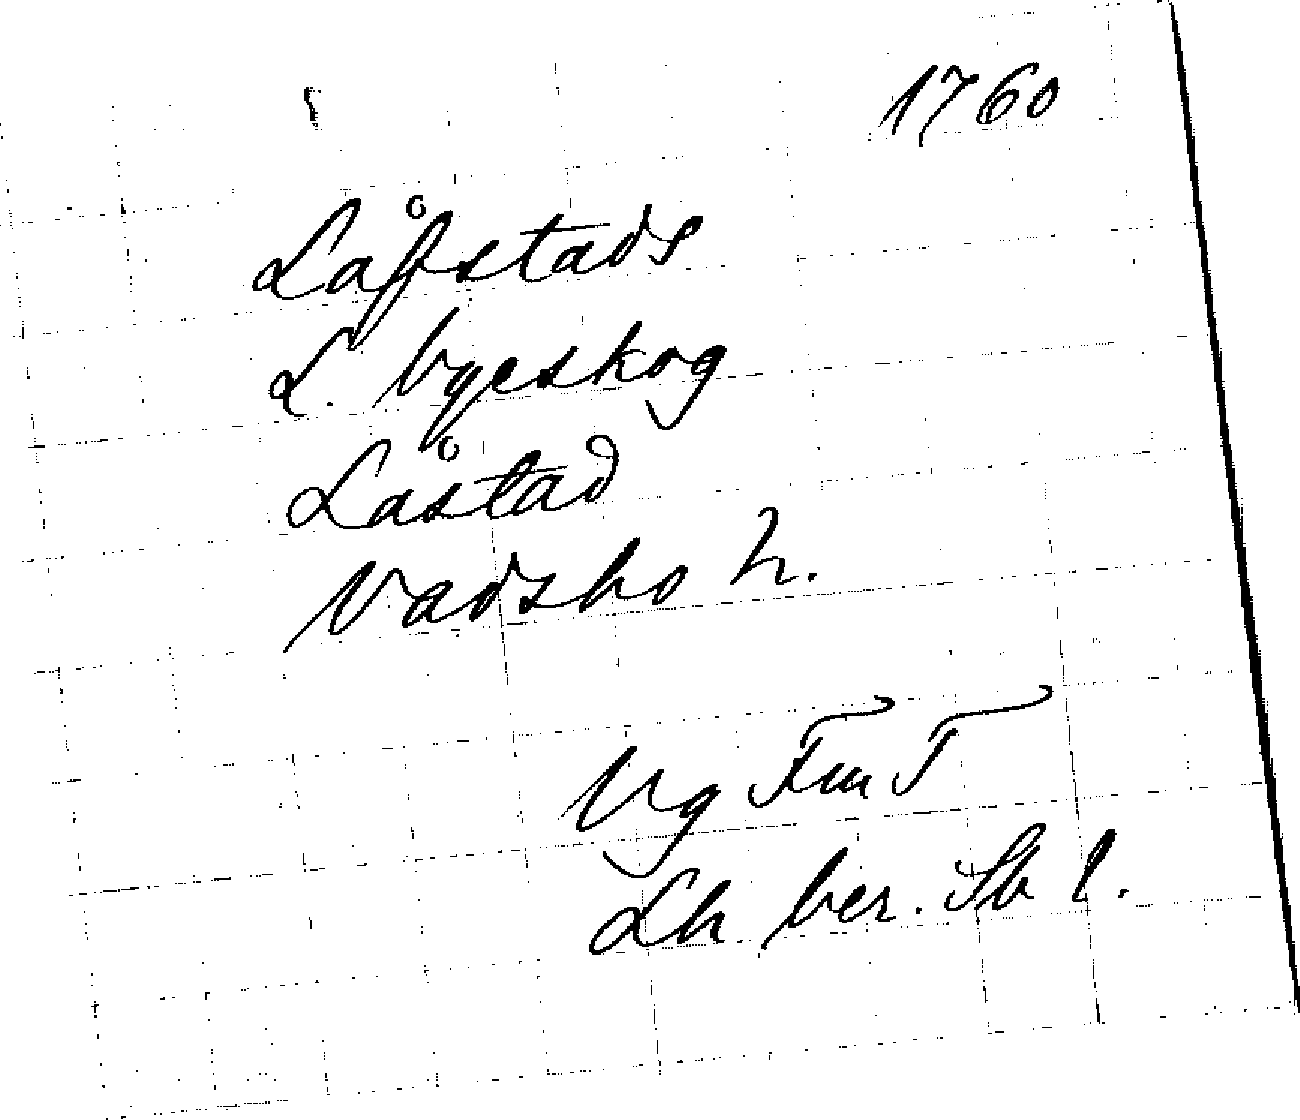 1760
Låfstads
L. byeskog
Låstad
Vadsbo h.
Vg FmT
Lh ber. Sb l.